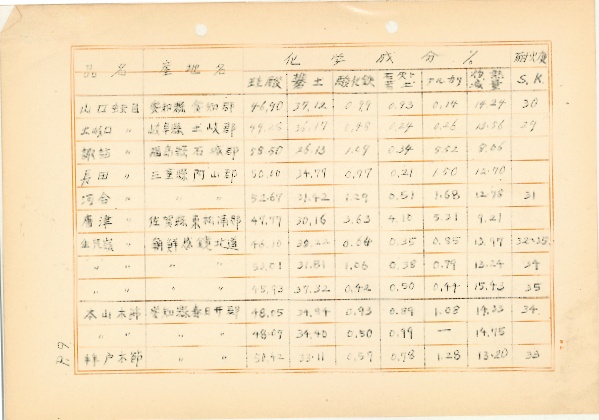 化学成分 %
品名 産地名 珪酸 礬土 酸化鉄 アルカリ 灼熱減量 耐火度 S.K.
山口蛙目 愛知縣 愛知郡 46.90 37.12 0.99 0.93 0.14 14.24 30
土岐口 〃 岐阜縣 土岐郡 0.24 0.26 13.56 29
〃 福島縣石城郡 58.50 26.13 1.29 0.34 5.52 8.06
長田 〃 三重縣阿山郡 50.10 34.79 0.97 0.21 1.50 12.70
河合 〃 〃 〃 52.67 31.42 1.20 0.51 1.68 12.75 31
唐津 〃 佐賀縣東松浦郡 47.77 30.16 3.63 4.10 5.21 9.21
生気嶺 〃 朝鮮咸鏡北道 46.10 38.22 0.64 0.35 0.85 13.97 32-35.
〃 〃 〃 〃 53.01 31.81 1.06 0.38 0.79 13.24 34
〃 〃 〃 〃 45.93 37.32 0.42 0.50 0.44 15.43 35
本山木節 愛知縣春日井郡 48.05 34.94 0.93 0.89 1.03 14.33 34
〃 〃 〃 48.09 34.40 0.50 0.99 — 14.75
木節 〃 〃 50.42 33.11 0.57 0.78 1.28 13.20 33
P.9